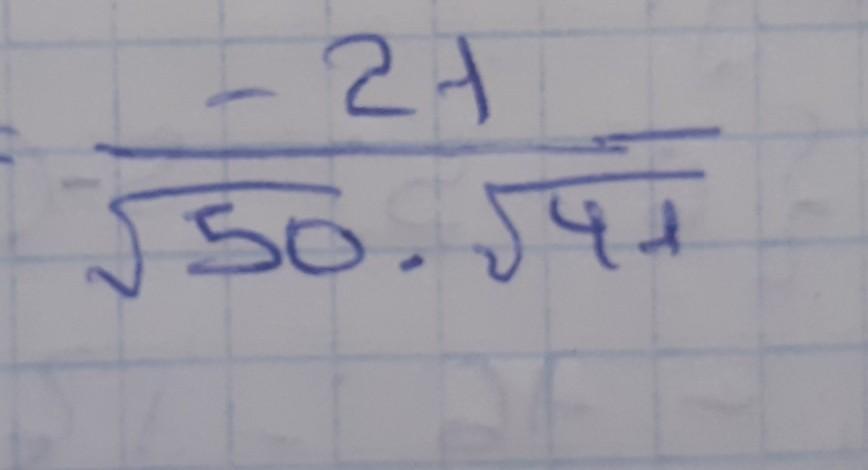 = -21
√50 . √41